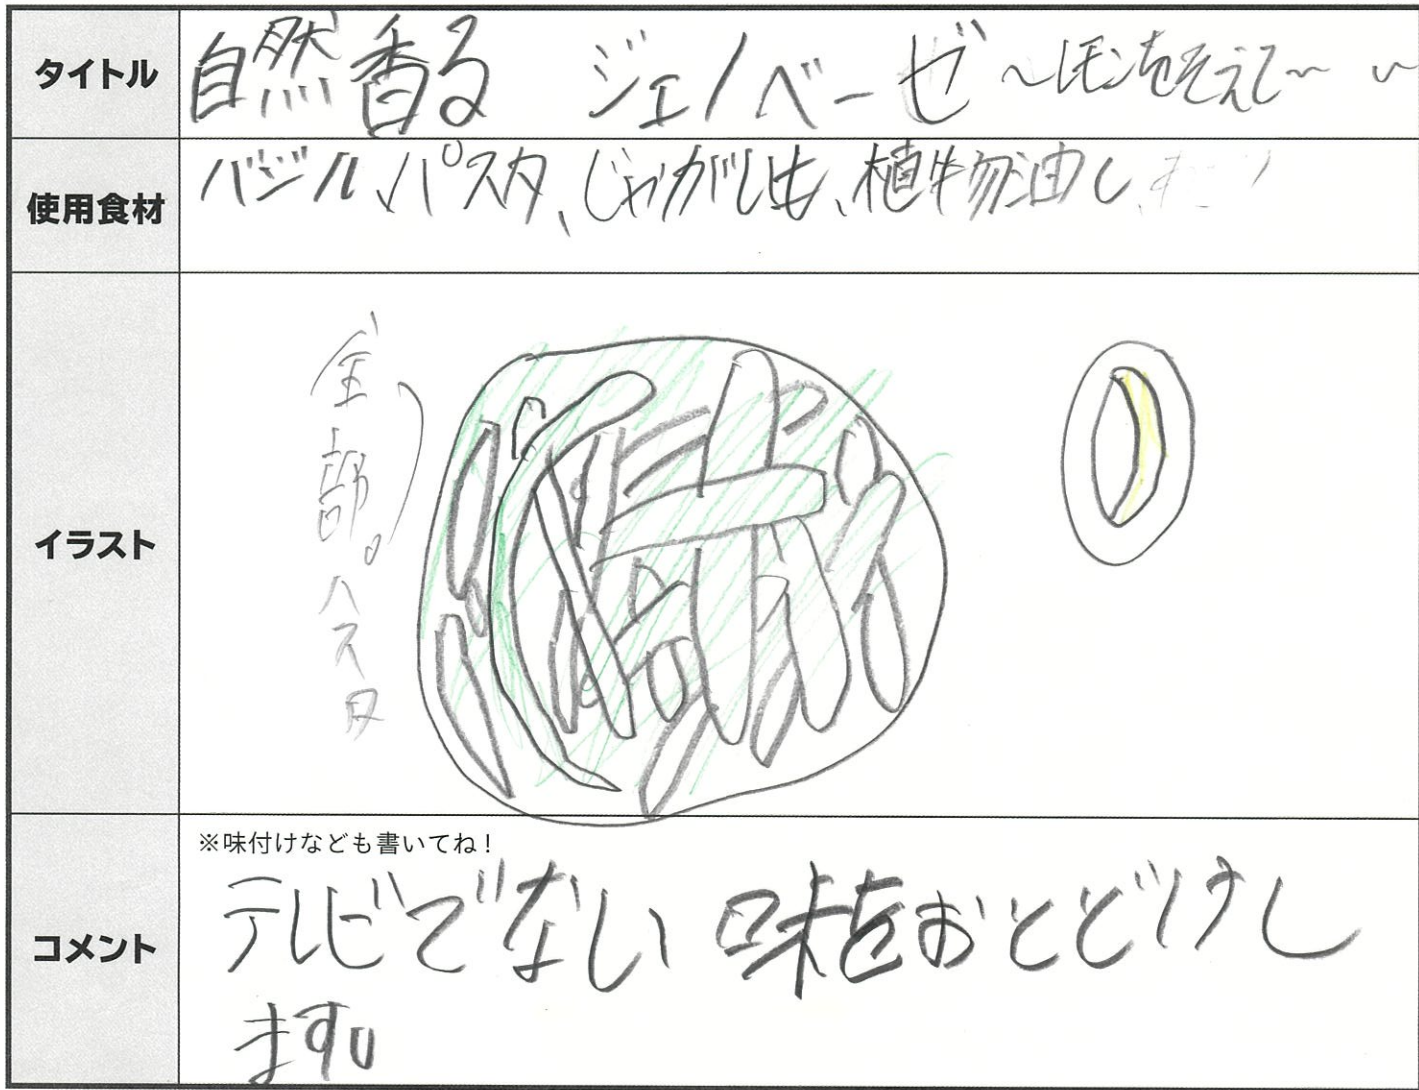 タイトル
自然香る ジェノベーゼ 〜レモンをそえて〜 〜
使用食材
バジル、パスタ、じゃがいも、植物油
イラスト
全部。
パスタ
コメント
※味付けなども書いてね!
テレビでない 味をおとどけし
ます。